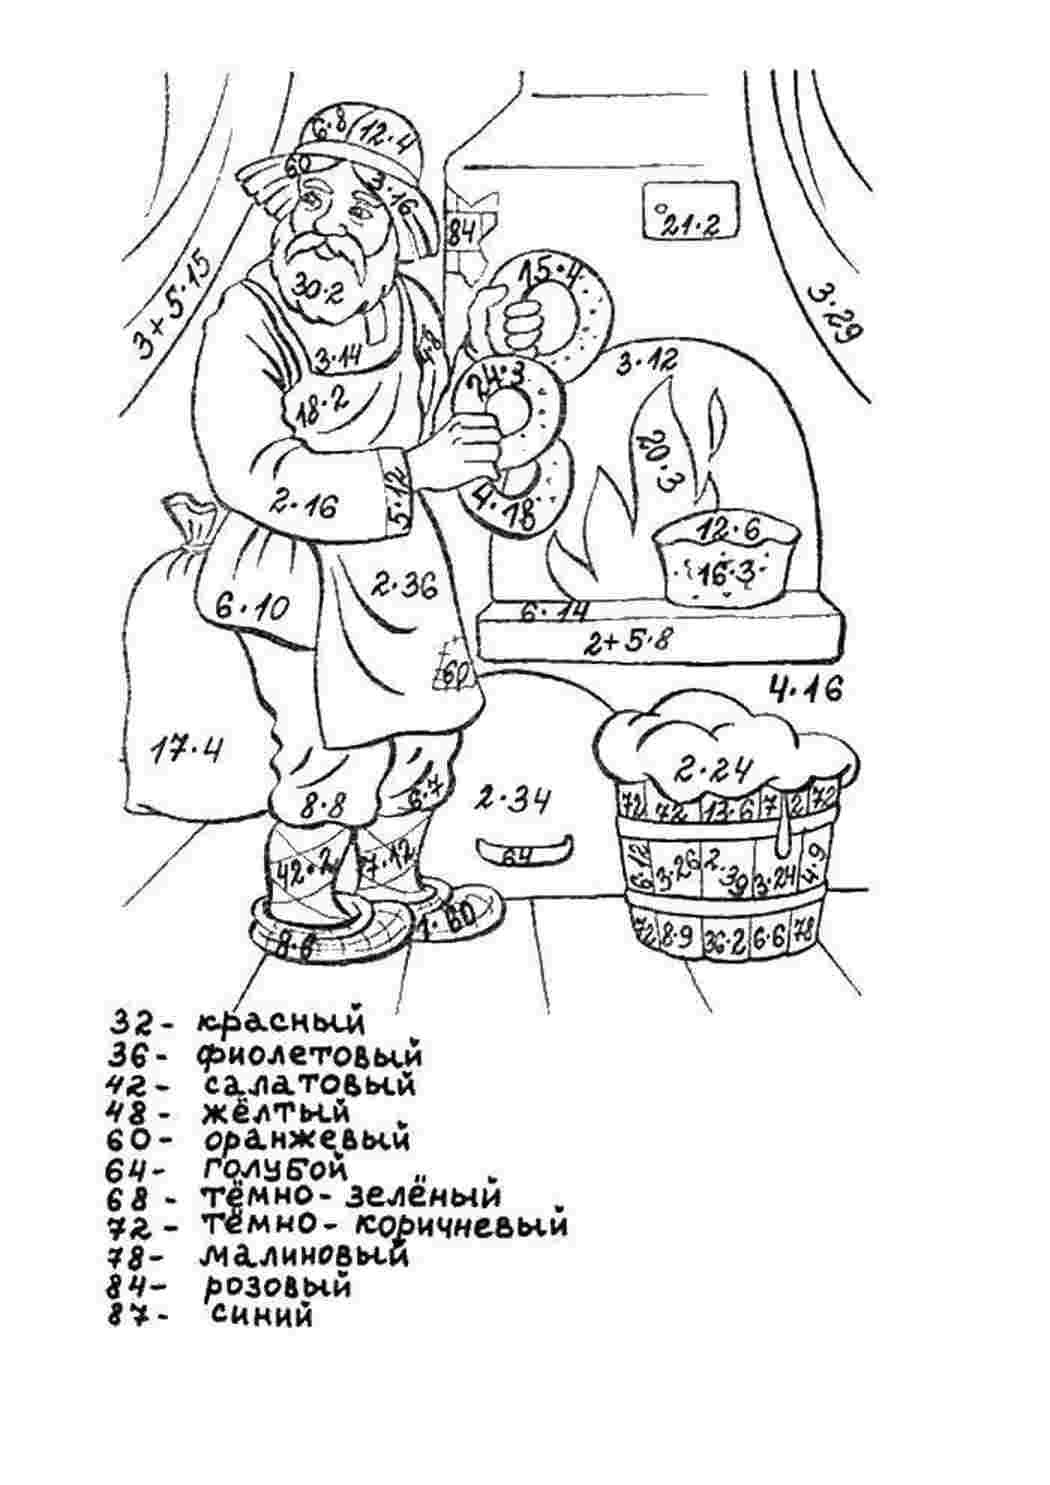 6·8 12·4
60
3·16
84
21·2
15·4
30·2
3+5·15
3·29
3·14
4·8
3·12
24·3
18·2
20·3
2·16
5·12
4·18
12·6
16·3
2·36
6·10
6·14
2+5·8
60
4·16
17·4
2·24
8·8
6·7
2·34
72 72 13·6 7 2 72
64
42·2 7·12
6·12 3·26 2·39 3·24 4·9
8·6 1·60
72 8·9 36·2 6·6 78
32- красный
36- фиолетовый
42- салатовый
48- жёлтый
60- оранжевый
64- голубой
68- тёмно-зелёный
72- тёмно-коричневый
78- малиновый
84- розовый
87- синий